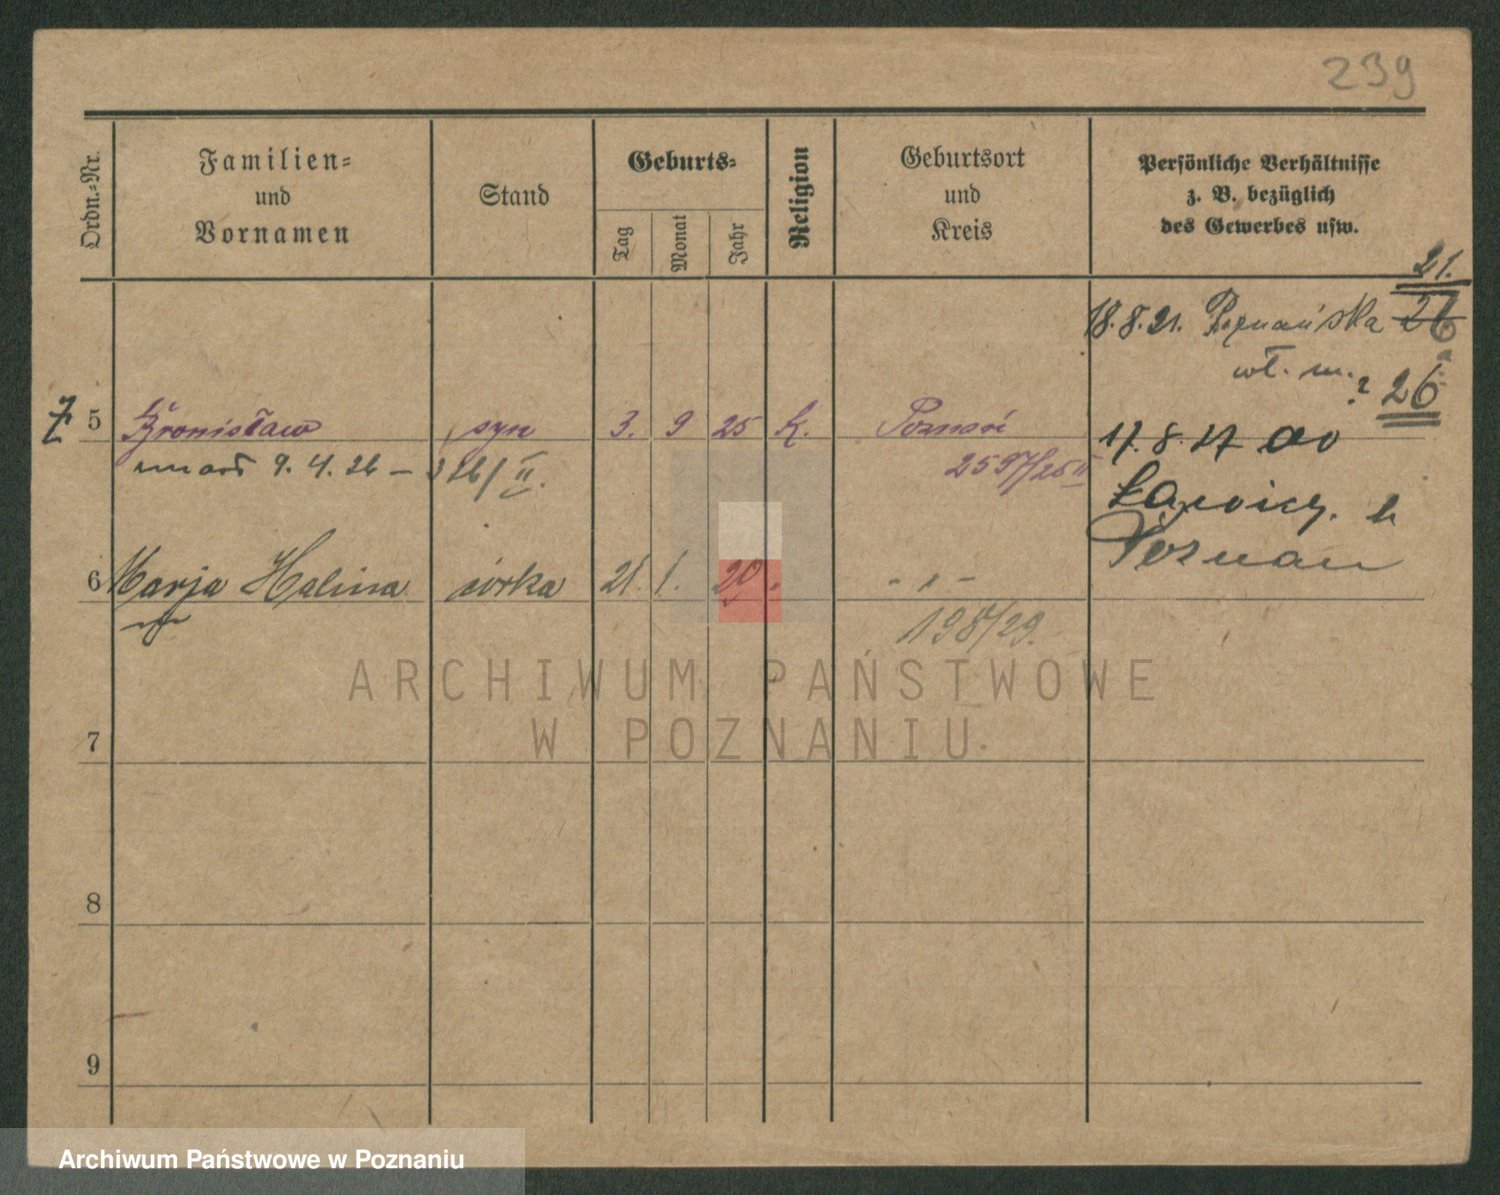 239
Ordn.-Nr.
Familien-
und
Vornamen
Stand
Geburts-
Tag
Monat
Jahr
Religion
Geburtsort
und
Kreis
Persönliche Verhältnisse
z. B. bezüglich
des Gewerbes usw.
21.
18.8.21. Poznańska 26
wł. m. ? 26
5 Bronisław syn 3. 9 25 k. Poznań
9. 4. 26 – 326/II.
2597/25 II
17.8.27
Poznań
6 Marja Halina córka 21. 1. 29 „ - „ -
198/29.
7
8
9
ARCHIWUM PAŃSTWOWE
W POZNANIU
Archiwum Państwowe w Poznaniu